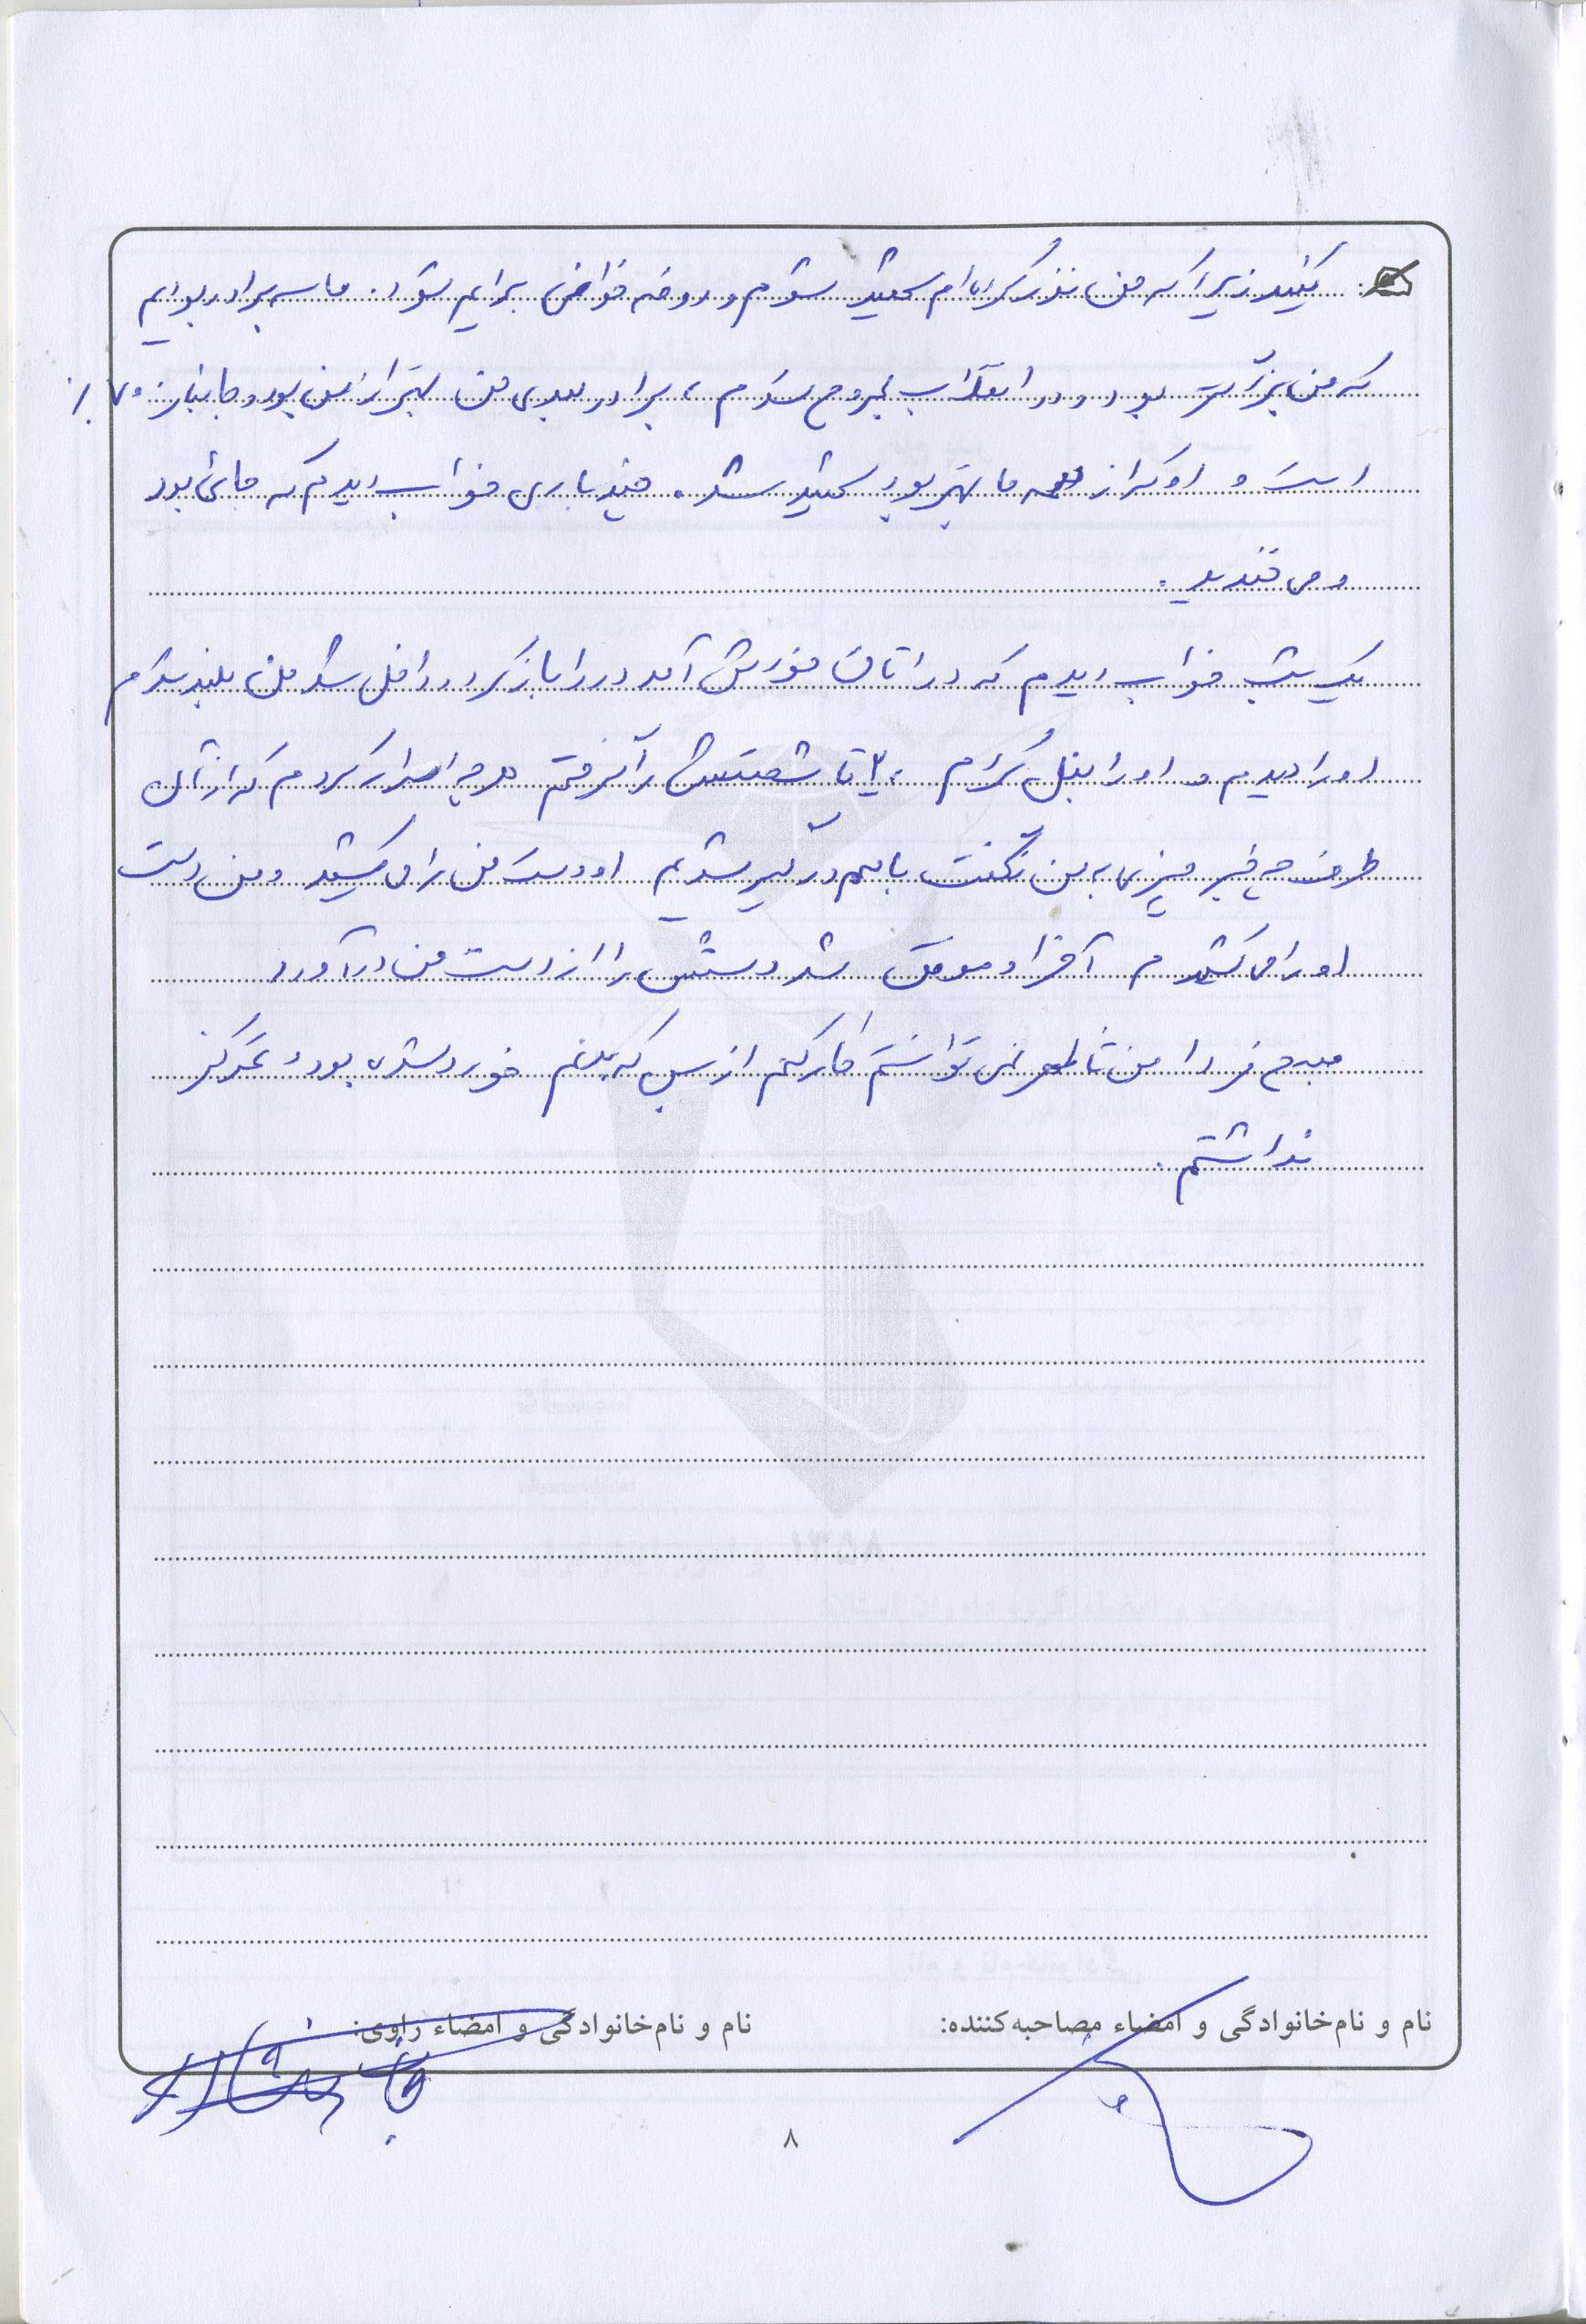 بکنید زیرا که من نذر کرده‌ام شهید شوم و روضه خوانی برایم شود. ما سه برادر بودیم
که من بزرگتر بودم و در انقلاب مجروح شدم، برادر بعدی من بهتر از من بود و جانباز ۷۰٪
است و او که از همه ما بهتر بود شهید شد. چند باری خواب دیدم که جائی بود
و می خندید.
یک شب خواب دیدم که در اتاق خودش آمد در را باز کرد و داخل شد من بلند شدم
او را دیدم و او را بغل کردم، ۲ تا شصتش را گرفتم هر چه اصرار کردم که از آن
طرف چه خبر چیزی به من نگفت با هم درگیر شدیم او دست من را می کشید و من دست
او را می کشیدم آخر او موفق شد دستش را از دست من در آورد
صبح فردا من تا ظهر نمی توانستم کار کنم از بس که بدنم خورد شده بود و تمرکز
نداشتم.
نام و نام‌خانوادگی و امضاء مصاحبه‌کننده: نام و نام‌خانوادگی و امضاء راوی:
۸